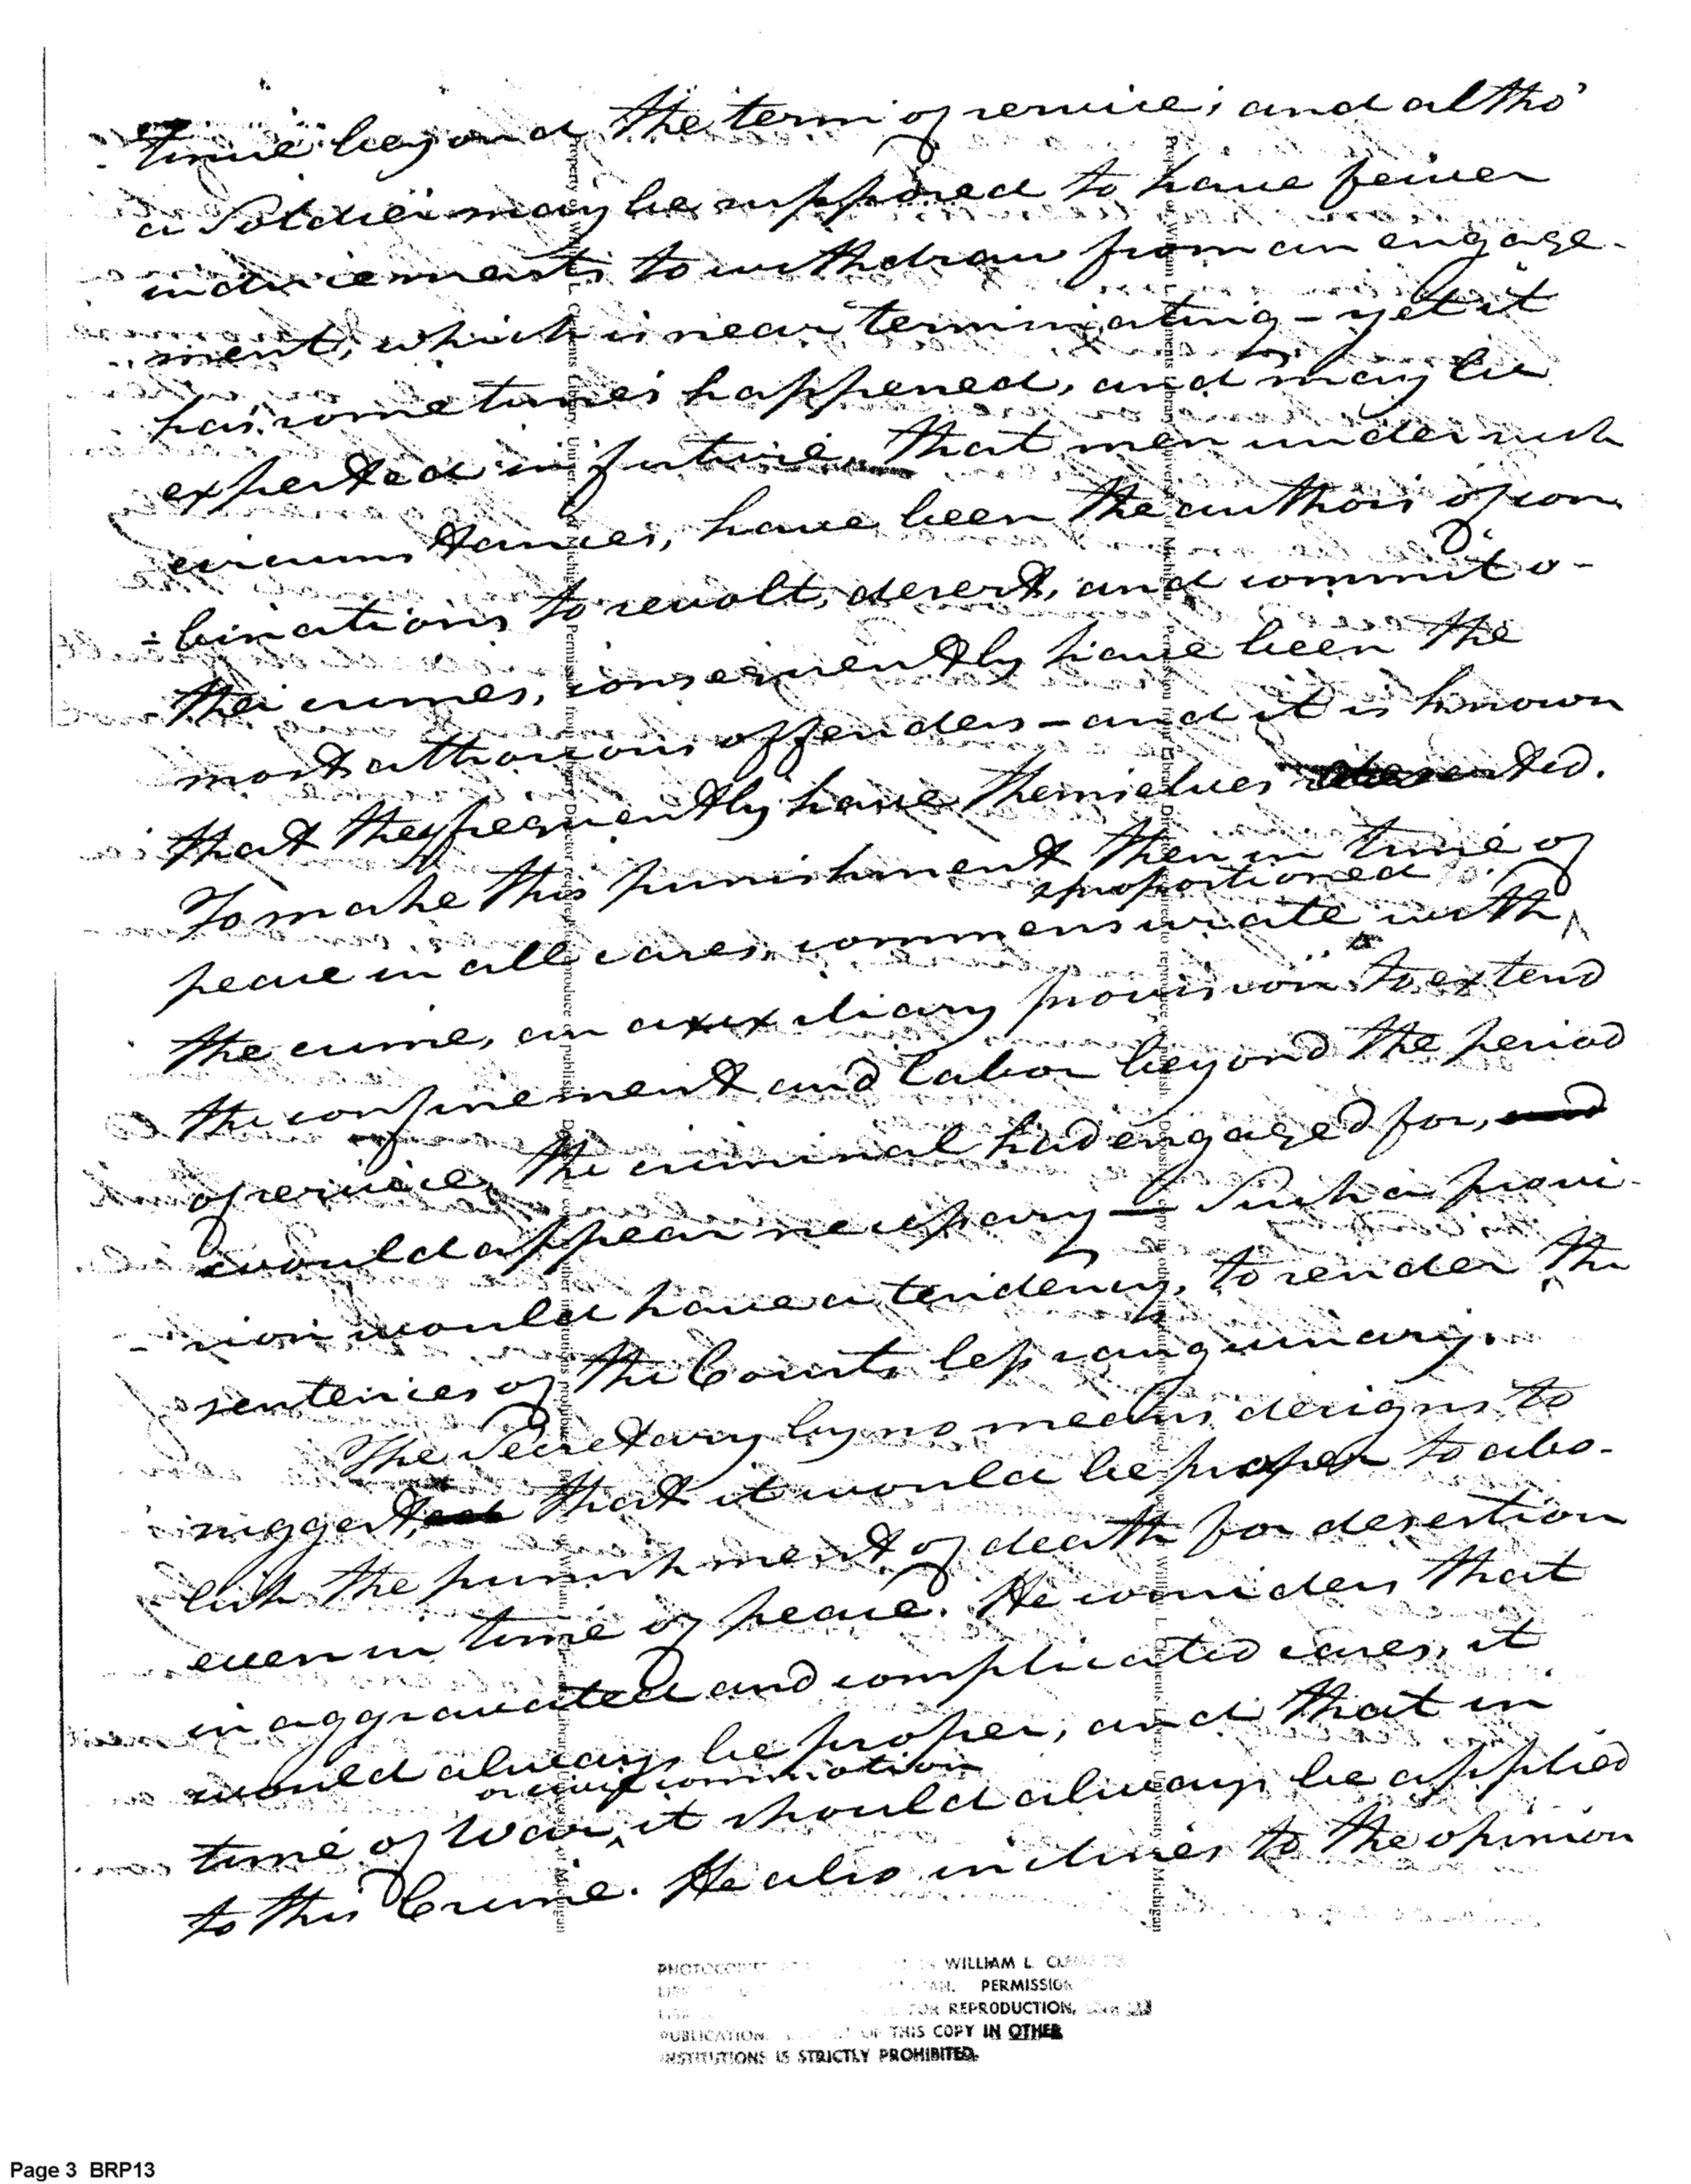 tinue beyond the term of service; and altho'
a Soldier may be supposed to have fewer
inducements to withdraw from an engage-
ment, which is near terminating - yet it
has sometimes happened, and may be
expected in future, that men under such
circumstances, have been the authors of com
=binations to revolt, desert, and commit o-
ther crimes, consequently have been the
most attrocious offenders - and it is known
that they frequently have themselves deserted.
To make this punishment then in time of
proportioned
peace in all cases commensurate with
the crime, an auxiliary provision to extend
the confinement and labor beyond the period
of service, the criminal had engaged for, and
would appear necessary — Such a provi-
sion would have a tendency, to render the
sentences of the Courts less sanguinary.
The Secretary by no means designs to
suggest, that it would be proper to abo-
lish the punishment of death for desertion
even in time of peace. He considers that
in aggravated and complicated cases, it
would always be proper, and that in
or civil commotion
time of War, it should always be applied
to this Crime. He also inclines to the opinion
Property of William L. Clements Library, University of Michigan. Permission from Library Director required to reproduce or publish. Deposit of copy in other institutions prohibited.
Property of William L. Clements Library, University of Michigan
Property of William L. Clements Library, University of Michigan. Permission from Library Director required to reproduce or publish. Deposit of copy in other institutions prohibited.
Property of William L. Clements Library, University of Michigan
WILLIAM L.
PERMISSION
FOR REPRODUCTION,
PUBLICATION, OF THIS COPY IN OTHER
INSTITUTIONS IS STRICTLY PROHIBITED.
Page 3 BRP13